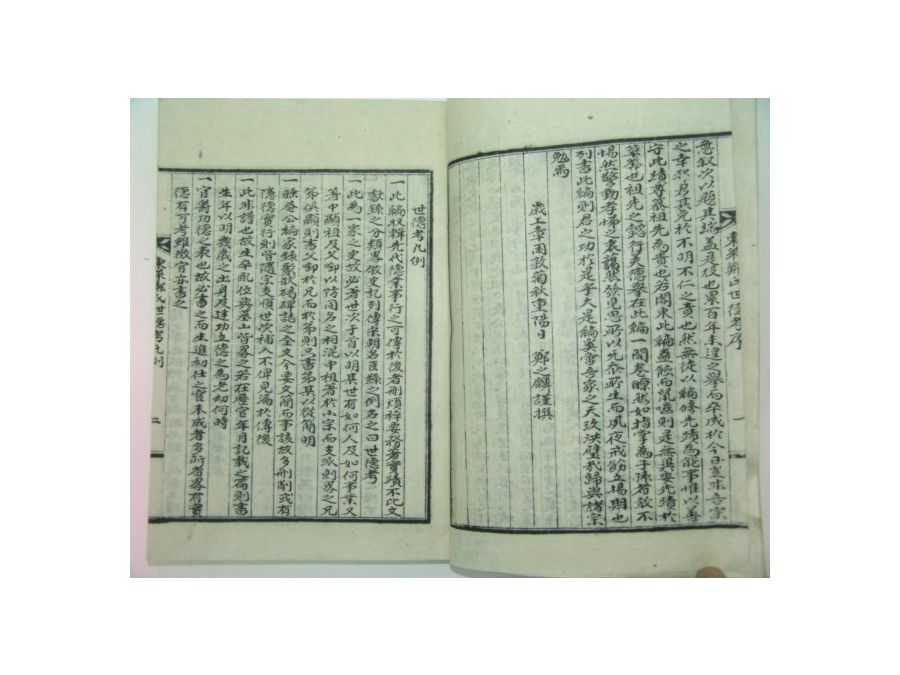 東萊鄭氏世德考序
一
急叙次以題其端盖是役也累百年未遑之擧而卒成於今日豈非吾宗
之幸歟君其免於不明不仁之責也然無徒以編修先績爲能事惟以善
守此績尊慕祖先爲貴也若閣束此編蠹蝕而鼠 則是無異委先績於
也祖先之懿行天德擧在此編一開卷瞭然如指掌爲子孫者敢不
惕然警動孝悌之衷藹然發見思所以无忝所生而夙夜戒飭立揚期也
列書此編則君之功於是乎大是編奚啻吾家之天球洪璧我歸與諸宗
勉焉
歲上章困敦菊秋重陽日 鄭之麟謹撰
世德考凡例
一此編収輯先代隱業事行之可傳於後者刪煩辭要務著實蹟不比文
獻錄之分類畧倣史記列傳 朝名臣錄之例名之曰世德考
一此爲一家之史故必著世次于首以明其世有如何人及如何事業又
著中顯祖及父 以防同名之相混中祖著於小宗而支派則畧之兄
弟俱顯則書父 於兄而於弟則只書弟其以從簡明
一 公編家錄聚狀碣碑誌之全文今要文簡而事該故多刪削或有
隱德實行則皆隨宗支順世次補入不俾見漏於傳後
一此非譜也故生卒乱位與墓山皆畧之若在歷官年月記載之屬則書
生年以明幾歲之出身及建功立德之爲老幼何時
一官爵功德之表也故必書之而生進初仕之官未成者多所省畧有實
德有可考雖微官亦書之
東萊鄭氏世德考凡例
二